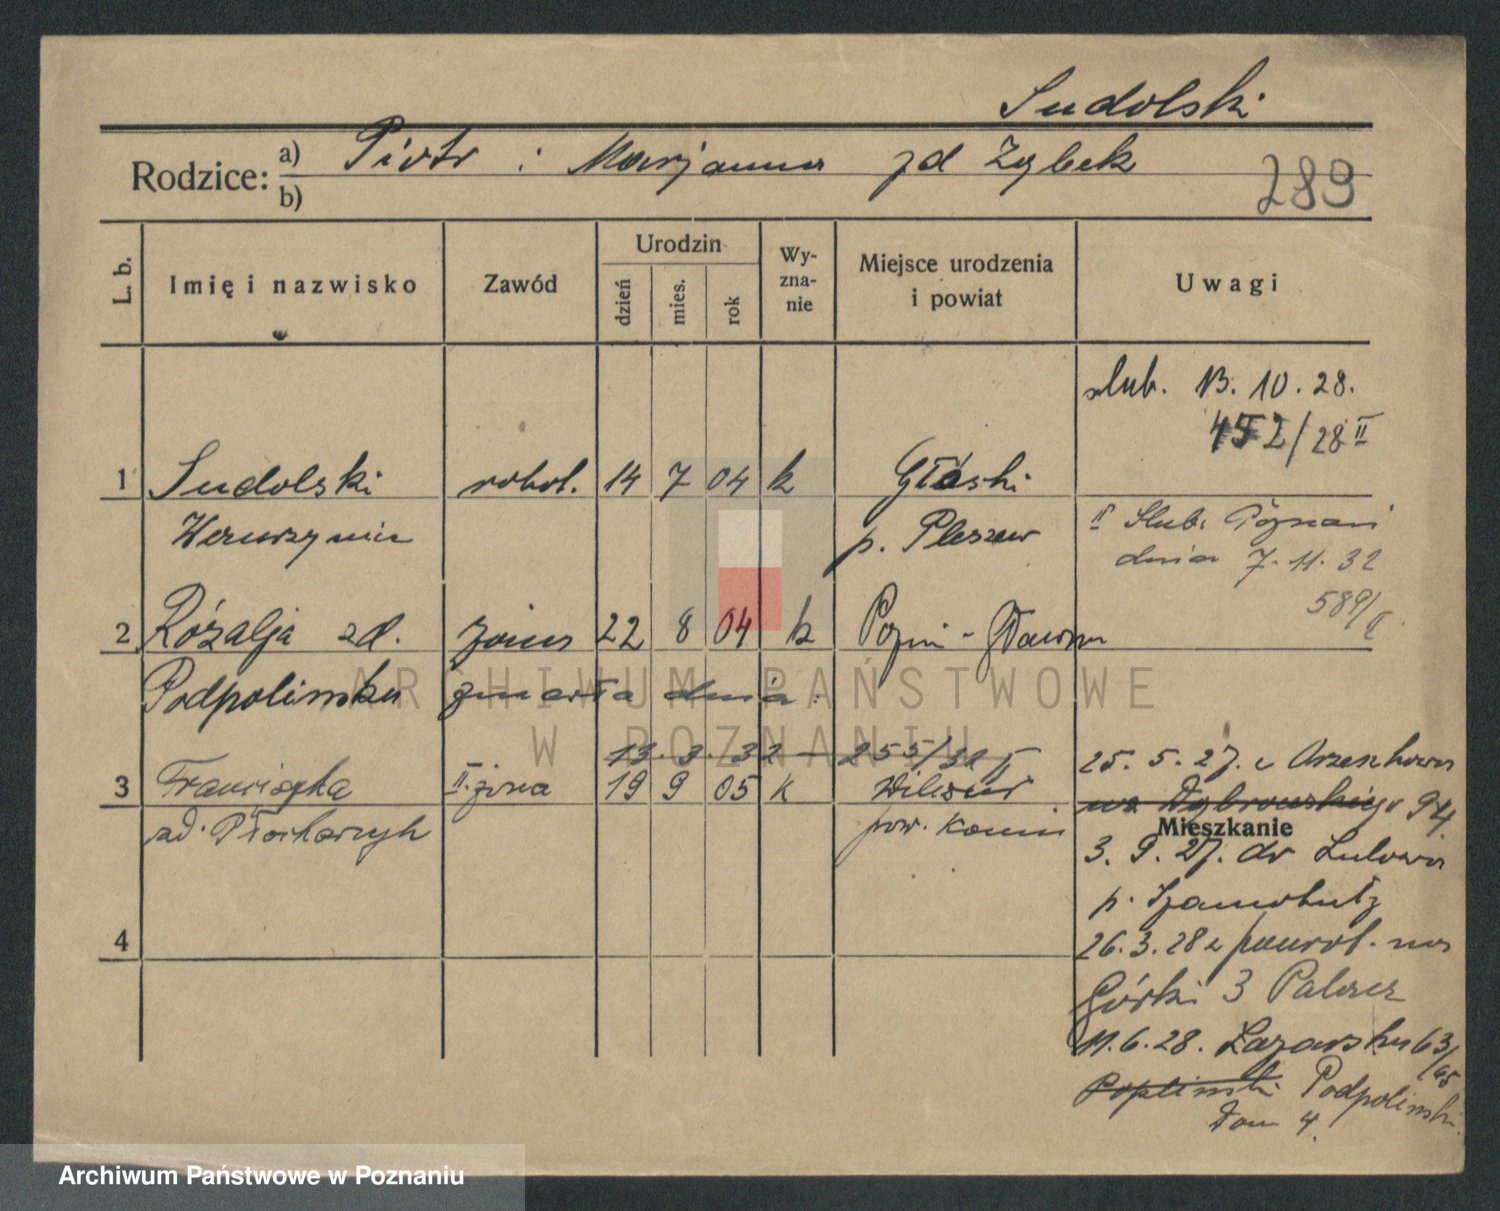 Sudolski
Rodzice: a) Piotr i Marjanna zd Zybek
b)
289
L. b.
Imię i nazwisko
Zawód
Urodzin
dzień
mies.
rok
Wy-
zna-
nie
Miejsce urodzenia
i powiat
Uwagi
slub. 13. 10. 28.
452/28 II
1 Sudolski robot. 14 7 04 k
Wawrzyniec p. Pleszew
II Slub. Poznań
dnia 7. 11. 32
589/II
2 Rózalja zd. żona 22 8 04 k
Podpolinska zmarła dnia:
13. 3. 32 - 255/32 II
3 Franciszka II. żona 19 9 05 k
zd. pow. Konin
25. 5. 27. z Orzeszkowa
na Dąbrowskiego 94
Mieszkanie
3. 9. 27. do
p. Szamotuły
26. 3. 28 z powrot. na
Górki 3
4
11. 6. 28. Łazarska 63/65
Poplinski Podpolinski
Dom 4.
ARCHIWUM PAŃSTWOWE
W POZNANIU
Archiwum Państwowe w Poznaniu